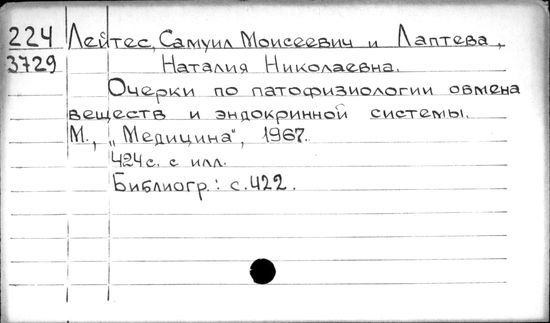 224 Лейтес, Самуил Моисеевич и Лаптева,
3729 Наталия Николаевна.
Очерки по патофизиологии обмена
веществ и эндокринной системы.
М., „Медицина", 1967.
424 с. с илл.
Библиогр.: с. 422.